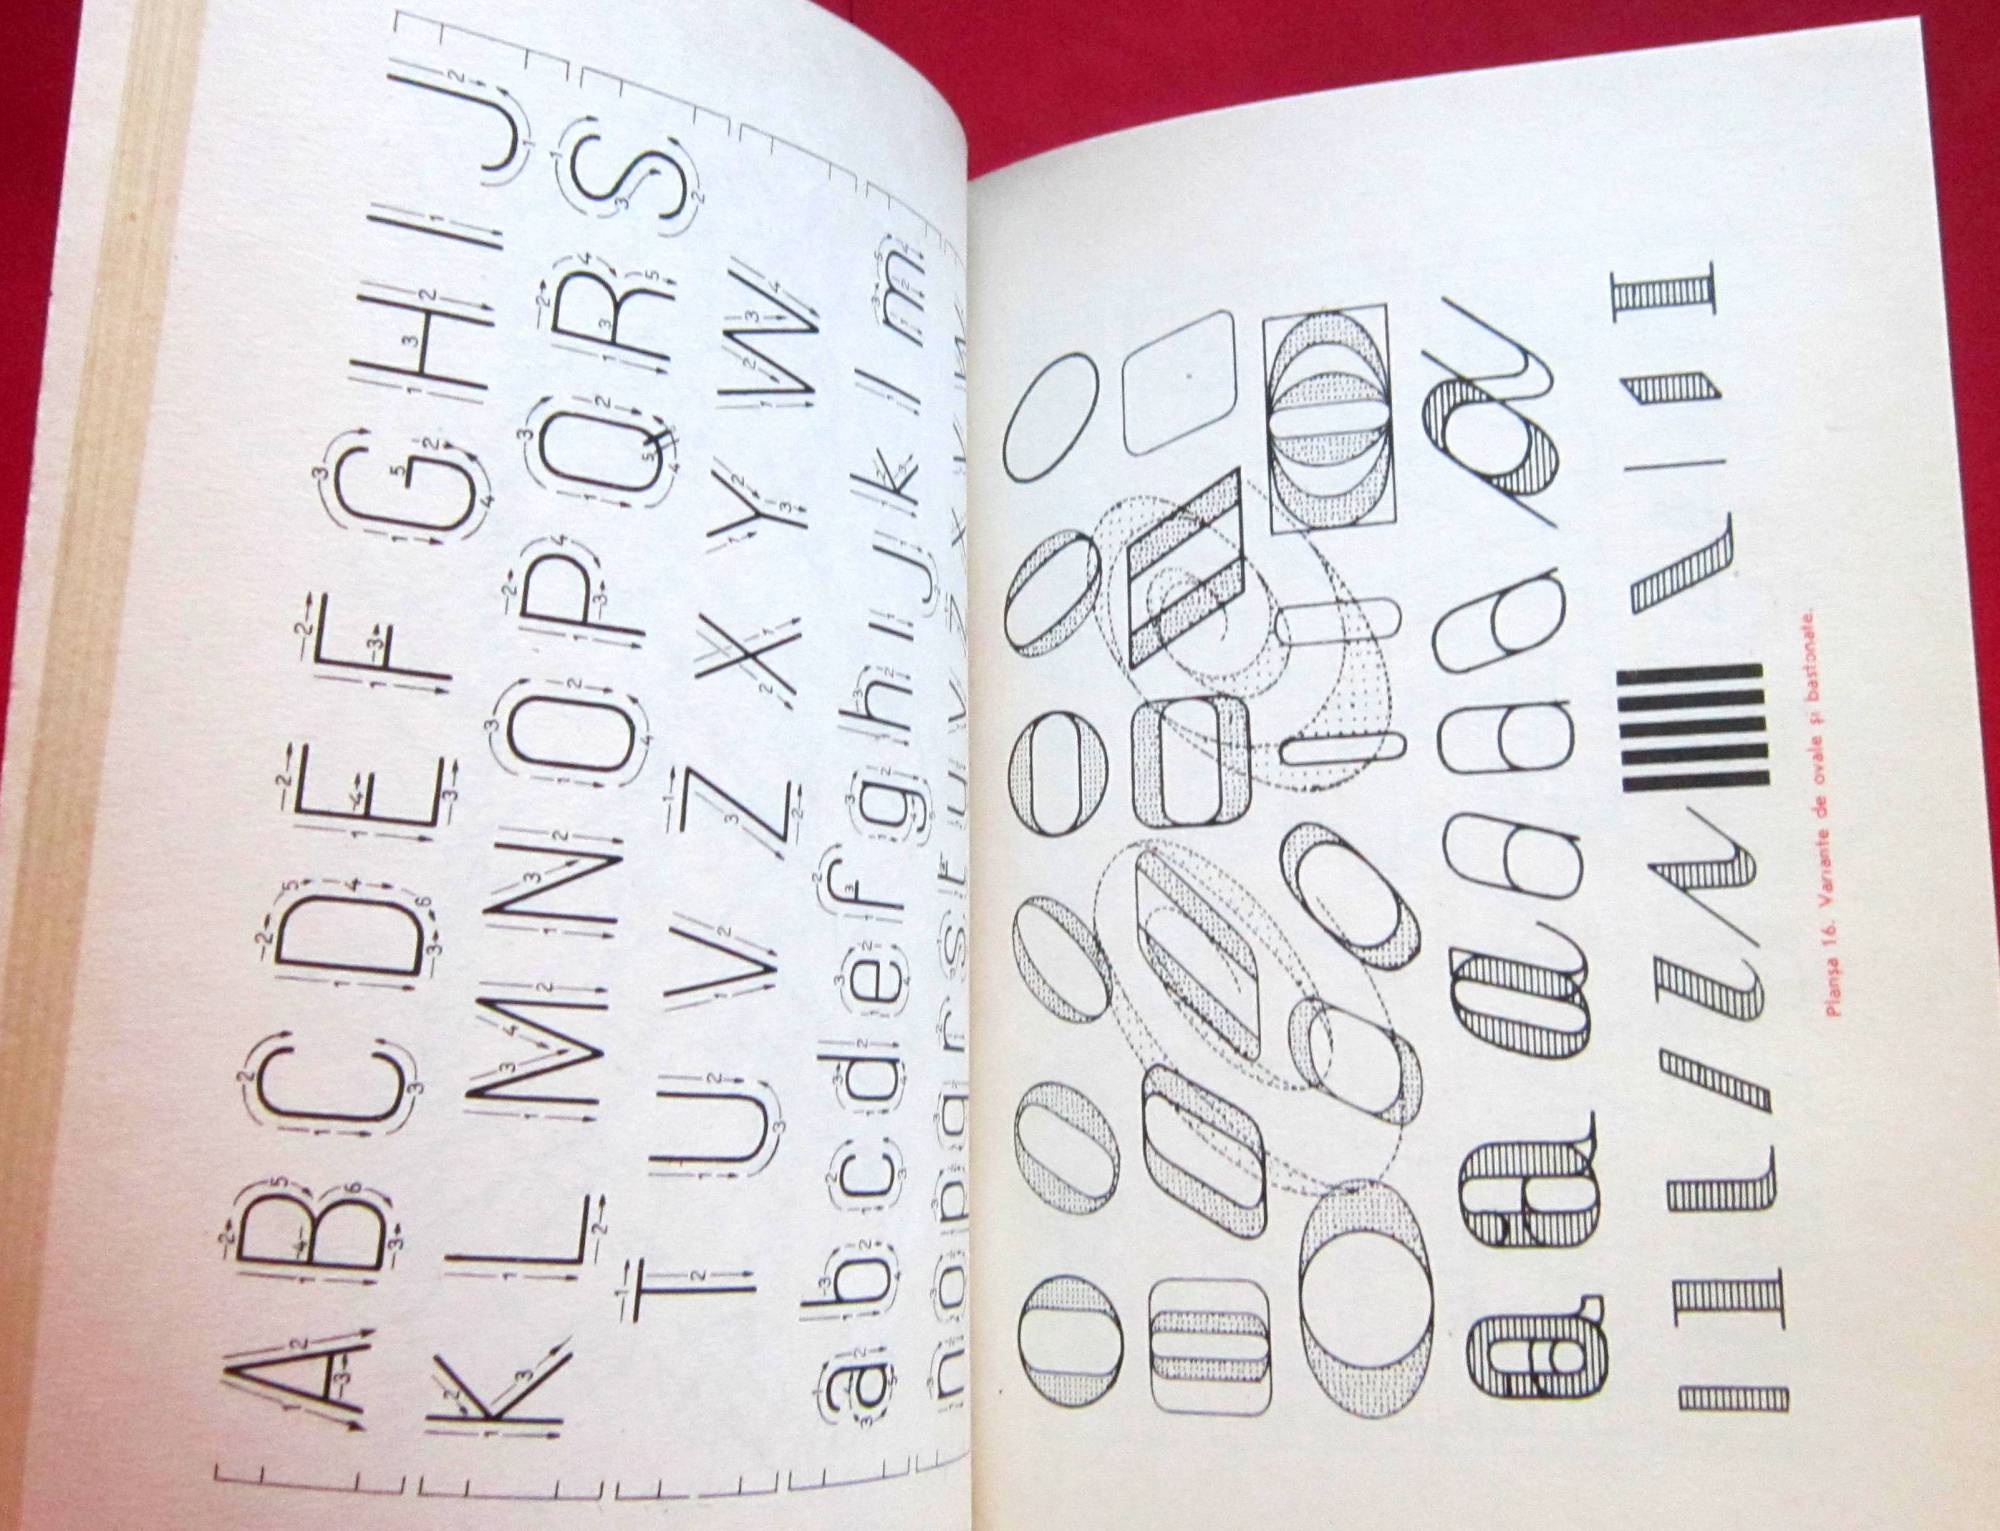 A B C D E F G H I J
K L M N O P Q R S
T U V Z X Y W
a b c d e f g h i j k l m
n o p q r s t u v z x y w
a a a a a a a
Planșa 16. Variante de ovale și bastonate.